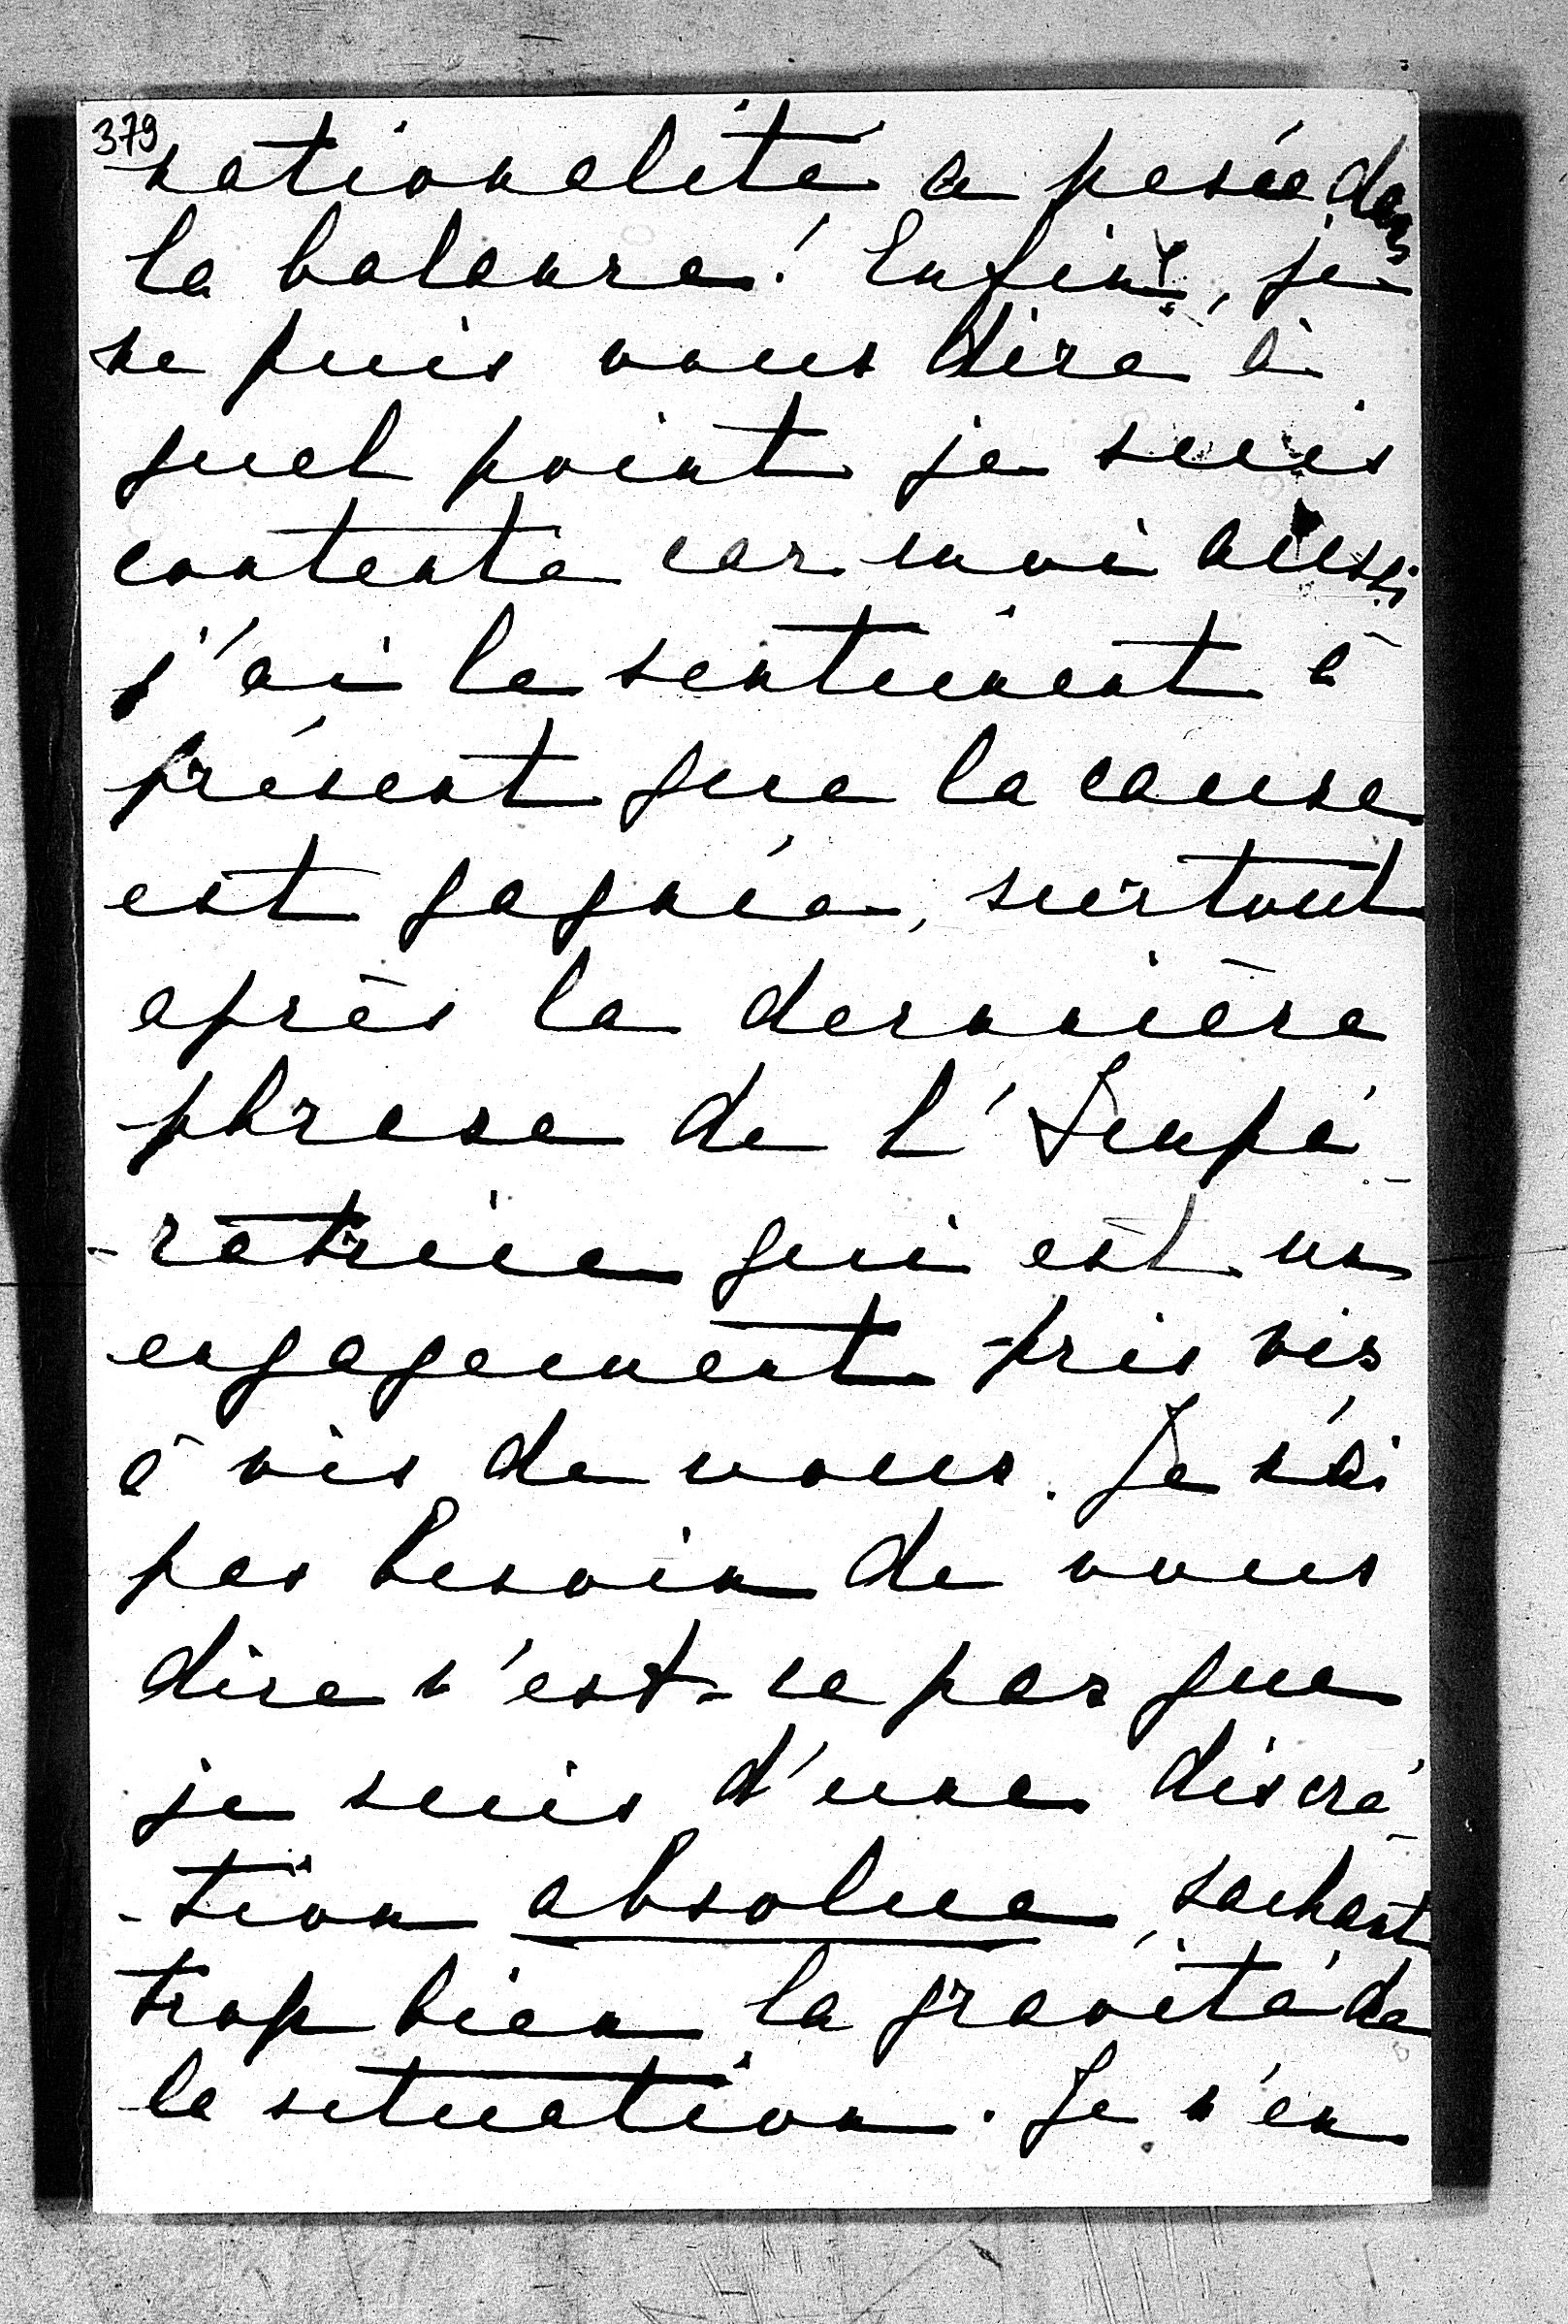 379
nationalité a pesée dans
la balance! Enfin, je
ne puis vous dire à
quel point je suis
contente car moi aussi
j'ai le sentiment à
présent que la cause
est gagnée, surtout
après la dernière
phrase de l'Impé-
-ratrice qui est un
engagement pris vis
à vis de vous. Je n'ai
pas besoin de vous
dire n'est-ce pas que
je suis d'une discré-
-tion absolue, sachant
trop bien la gravité de
la situation. Je n'en